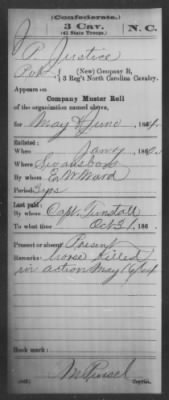 (Confederate.)
3 Cav. N. C.
(41 State Troops.)
P. Justice
Pvt., (New) Company B,
3 Reg't North Carolina Cavalry.
Appears on
Company Muster Roll
of the organization named above,
for May & June, 1864.
Enlisted:
When Jany, 186
Where Swansboro
By whom E. W. Ward
Period 3 yrs
Last paid:
By whom Capt. Tunstall
To what time Oct 31, 186
Present or absent Present
Remarks: horse killed
in action May 16/64
Book mark:
Copyist.